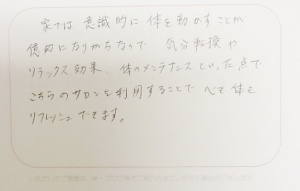 家では 意識的に 体を動かすことが
億劫になりがちなので 気分転換や
リラックス効果、体のメンテナンスといった点で
こちらのサロンを利用することで 心も体も
リフレッシュできます。